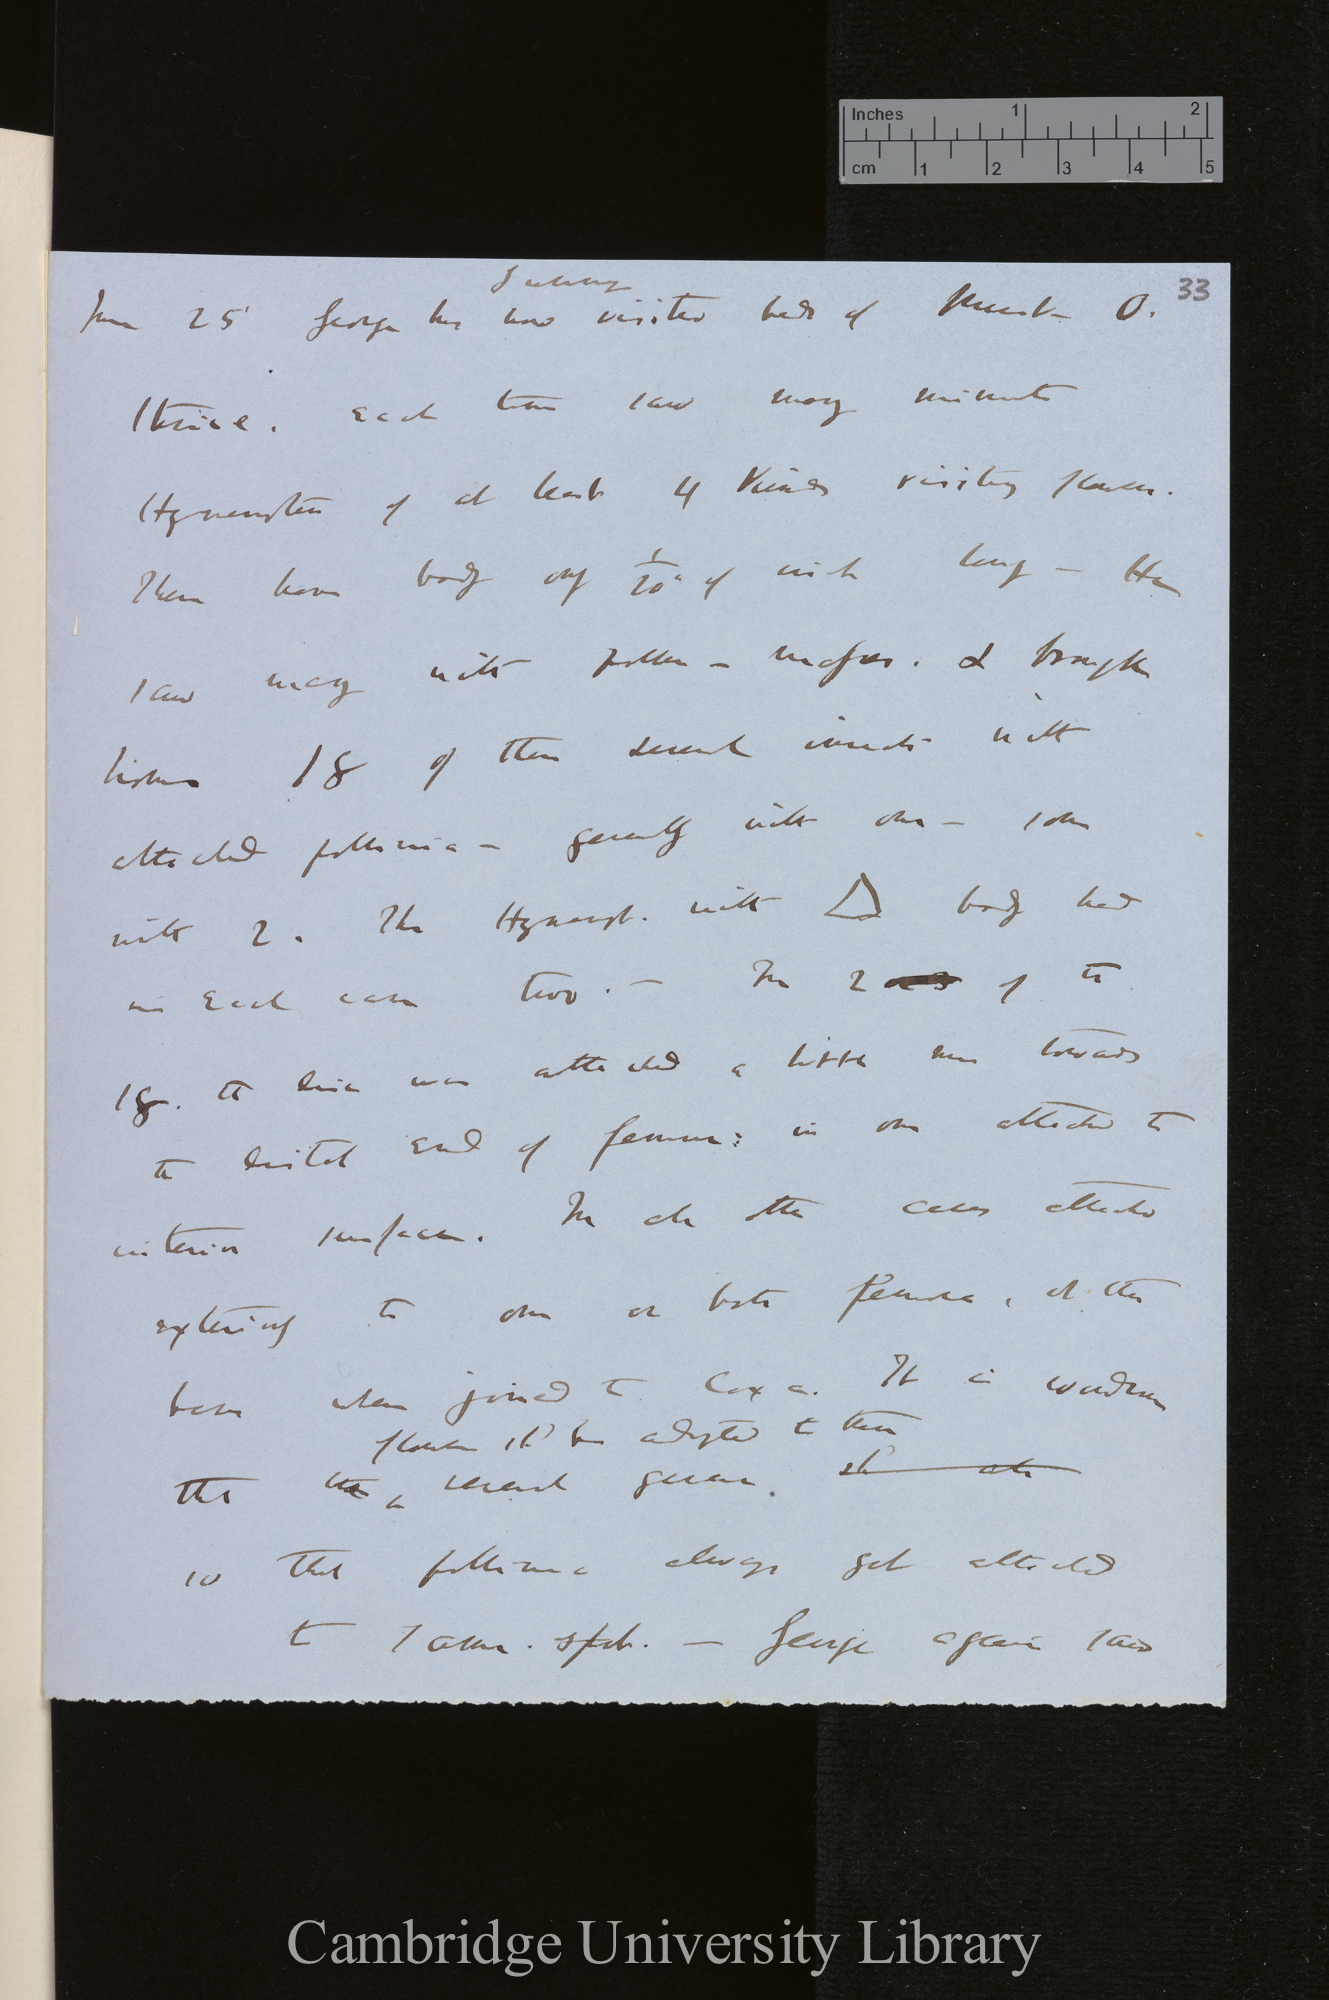 Inches 1 2
cm 1 2 3 4 5
33
June 25 George has now visited beds of Musk O.
thrice. Each time saw many minute
Hymenoptera of at least 4 kinds visiting flowers.
These have body only 1/20 of inch long — He
saw many with pollen-masses. & brought
home 18 of these several insects with
attached pollinia — generally with one — some
with 2. The Hymenopt. with △ body had
in each case two. — In 2 of the
18. the disc was attached a little more towards
the distal end of femur: in one attached to
interior surface. In all other cases attached
exteriorly to one or both femora, at the
base when joined to Coxa. It is wondrous
flower shd be adapted to these
that the several genera. sh
so that pollinia always get attached
to same spot. — George again saw
Cambridge University Library